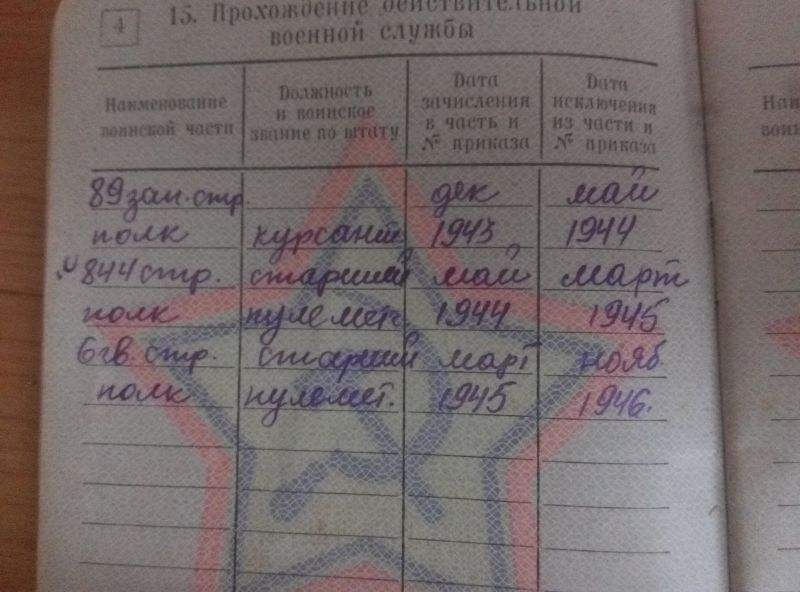 4
15. Прохождение действительной
военной службы
Наименование
воинской части
Должность
и воинское
звание по штату
Дата
зачисления
в часть и
№ приказа
Дата
исключения
из части и
№ приказа
89 зап. стр. дек май
полк курсант 1943 1944
844 стр. старший май март
полк пулемет. 1944 1945
6 гв. стр. старший март нояб
полк пулемет. 1945 1946.